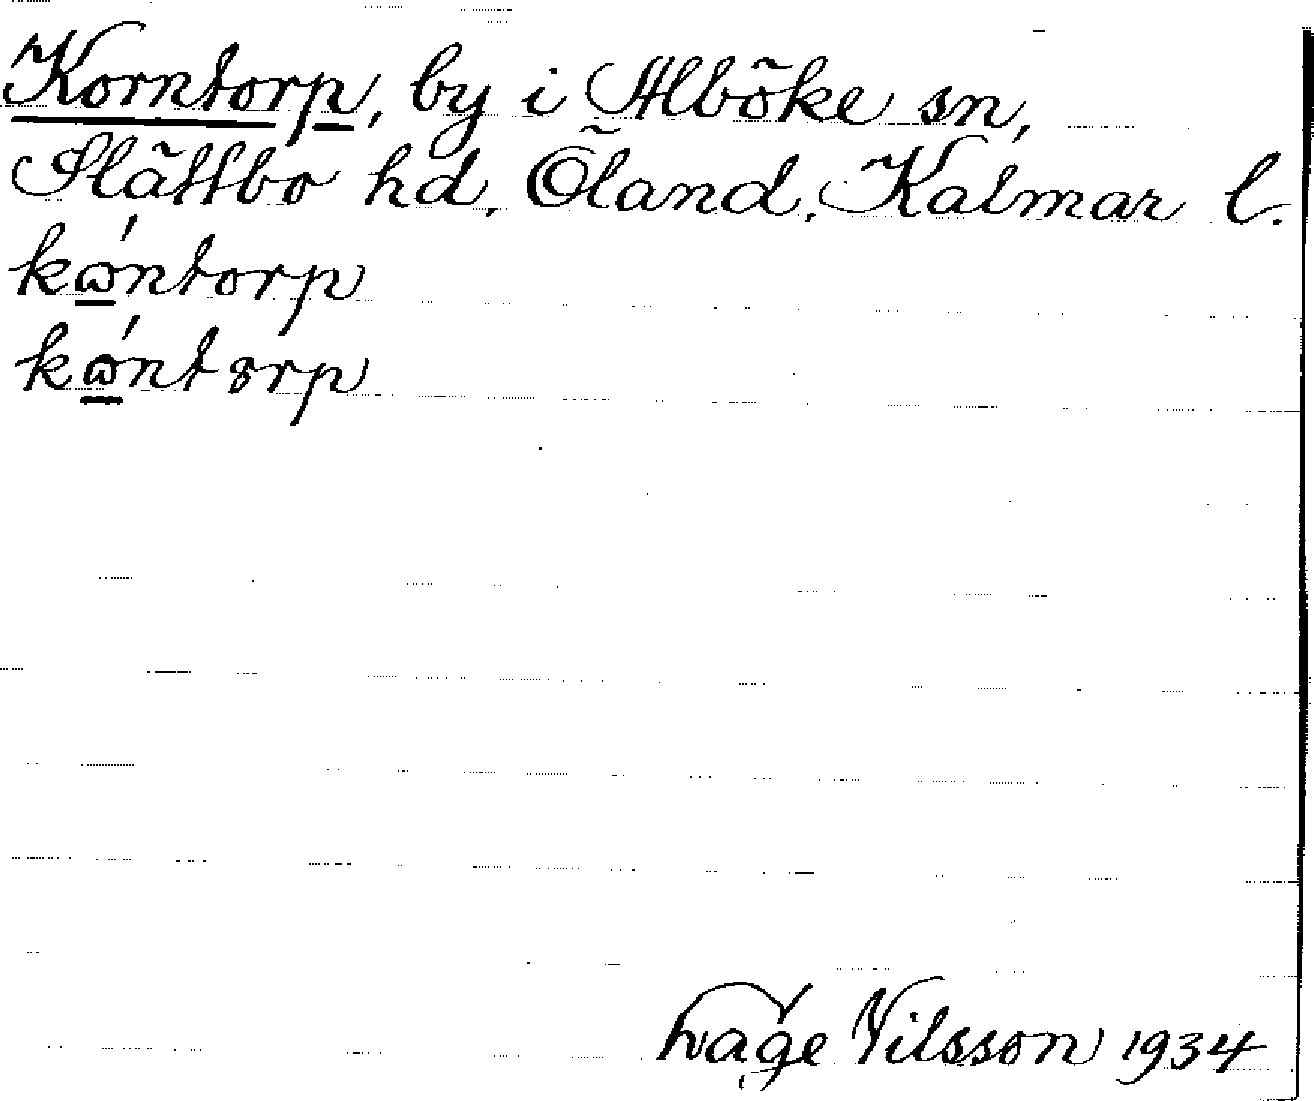 Korntorp, by i Alböke sn,
Slättbo hd, Öland, Kalmar l.
kώntorp
kώntȣrp
Tvage Nilsson 1934